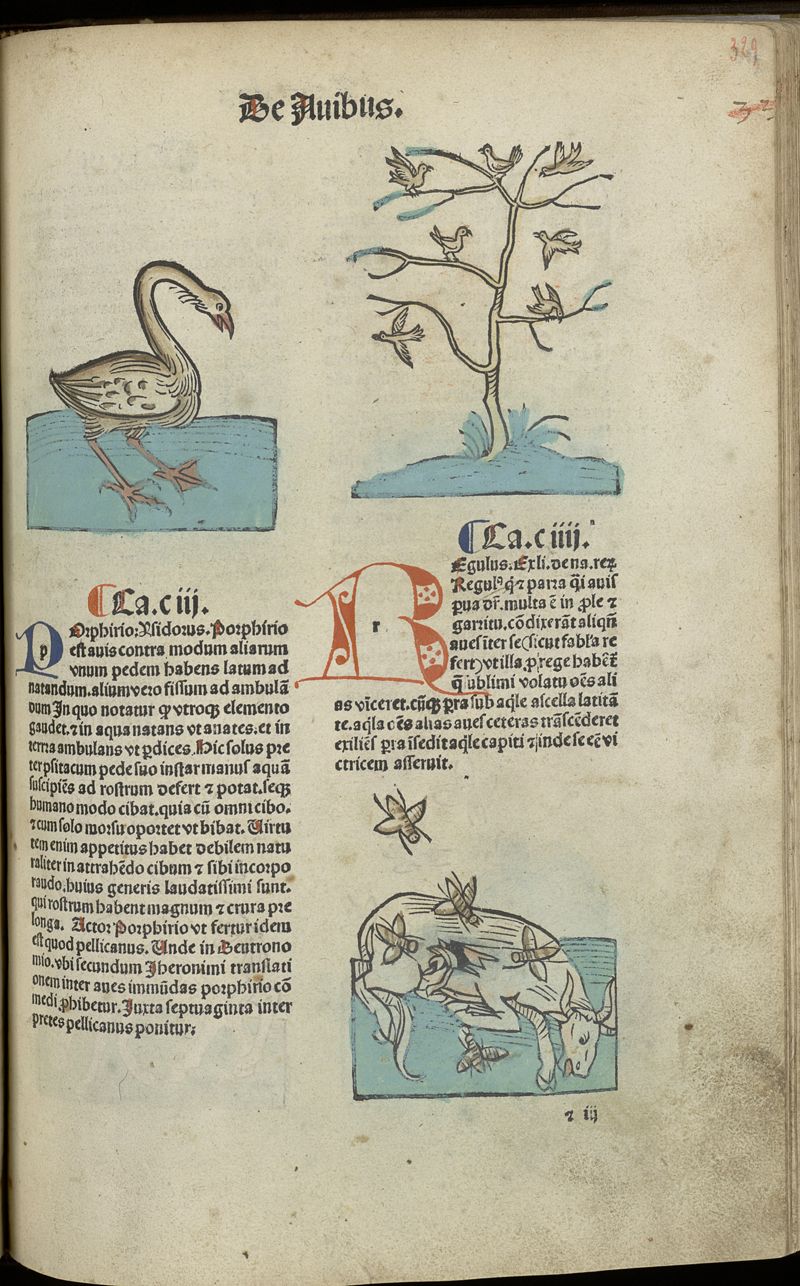 329
De Auibus.
Ca.c iij.
p Orphirio: Ysidorus. Porphirio
est auis contra modum aliarum
vnum pedem habens latum ad
natandum. alium vero fissum ad ambulā
dum In quo notatur ꝙ vtroqꝫ elemento
gaudet. ⁊ in aqua natans vt anates. et in
terra ambulans vt ꝑdices. Hic solus pre
ter psitacum pede suo instar manus aquā
suscipiēs ad rostrum defert ⁊ potat. seqꝫ
humano modo cibat. quia cū omni cibo.
⁊ cum solo morsu oportet vt bibat. Uirtu
tem enim appetitus habet debilem natu
raliter in attrahēdo cibum ⁊ sibi incorpo
rando. huius generis laudatissimi sunt.
qui rostrum habent magnum ⁊ crura pre
longa. Actor Porphirio vt fertur idem
est quod pellicanus. Unde in Deutrono
mio. vbi secundum Jheronimi translati
onem inter aues immūdas porphirio cō
medi ꝓhibetur. Juxta septuaginta inter
pretes pellicanus ponitur:
Ca.c iiij.
r Egulus. Ex li. de na. reꝝ
Regulꝰ q̄ ⁊ parra q̄i auis
ꝑua dr̄. multa ē in ꝓle ⁊
garritu. cō dixerāt aliqn̄
aues iter se (sicut fabl'a re
fert) vt illa. ꝓ rege habet̄
q̄ ublimi volatu oēs ali
as vīceret. cūqꝫ ꝑra sub aqle ascella latitā
te. aqla cēs alias aues ceteras trāscēderet
exiliēs ꝑra īsedit aqle capiti ⁊ inde se eē vi
ctricem asseruit.
⁊ iij